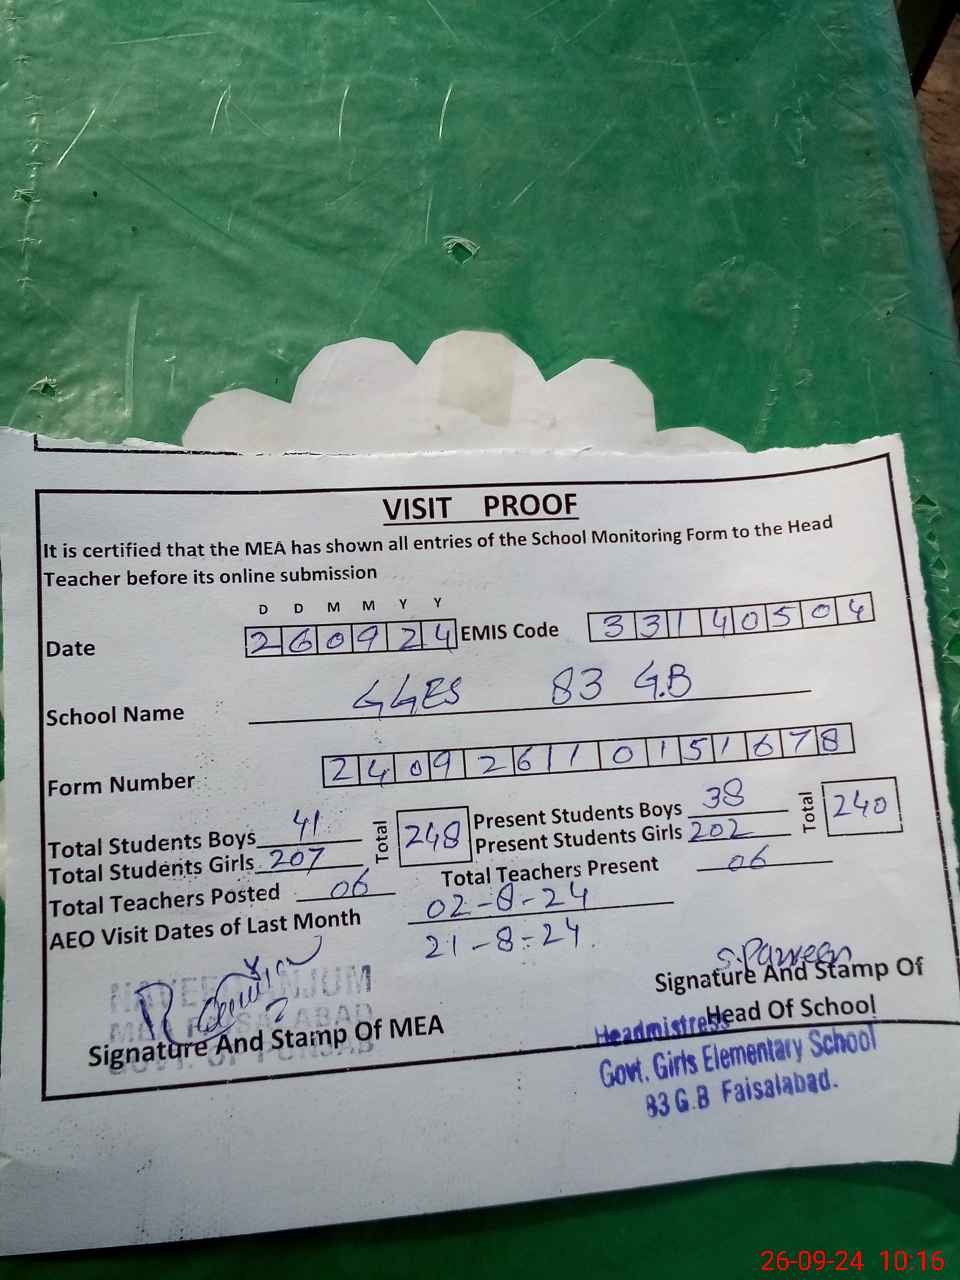 VISIT PROOF
It is certified that the MEA has shown all entries of the School Monitoring Form to the Head
Teacher before its online submission
D D M M Y Y
Date 260924 EMIS Code 33140504
School Name GGES 83 G.B
Form Number 240926110151678
Total Students Boys 41 Total 248 Present Students Boys 38 Total 240
Total Students Girls 207 Present Students Girls 202
Total Teachers Posted 06 Total Teachers Present 06
AEO Visit Dates of Last Month 02-8-24
21-8-24.
S.Parveen
Signature And Stamp Of MEA
Signature And Stamp Of
Head Of School
Headmistress
Govt. Girls Elementary School
83 G.B Faisalabad.
26-09-24 10:16